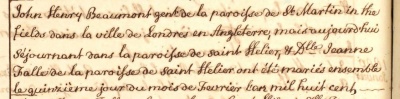 John Henry Beaumont gent de la paroisse de St. Martin in the
Fields dans la ville de Londres en Angleterre, mais aujourd'hui
Séjournant dans la paroisse de Saint Helier, & Dlle Jeanne
Falle de la paroisse de Saint Helier ont été mariés ensemble
le quinzieme jour du mois de Fevrier l'an mil huit cent,